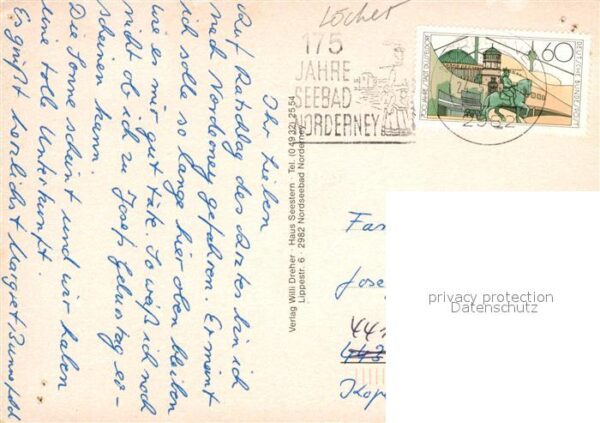 Löcher
175
JAHRE
SEEBAD
NORDERNEY
60
DEUTSCHE BUNDESPOST
2982
Ihr Lieben
Auf Ratschlag des Arztes bin ich
nach Norderney gefahren. Er meint
ich solle so lange hier oben bleiben
wie es mir gut täte. So weiß ich noch
nicht ob ich zu Josefs Geburtstag er-
scheinen kann.
Die Sonne scheint und wir haben
eine tolle Unterkunft.
Es grüßt herzlichst Margret
Verlag Willi Dreher · Haus Seestern · Tel. (0 49 32) 25 54
Lippestr. 6 · 2982 Nordseebad Norderney
Fa
Jose
441
Kop
privacy protection
Datenschutz